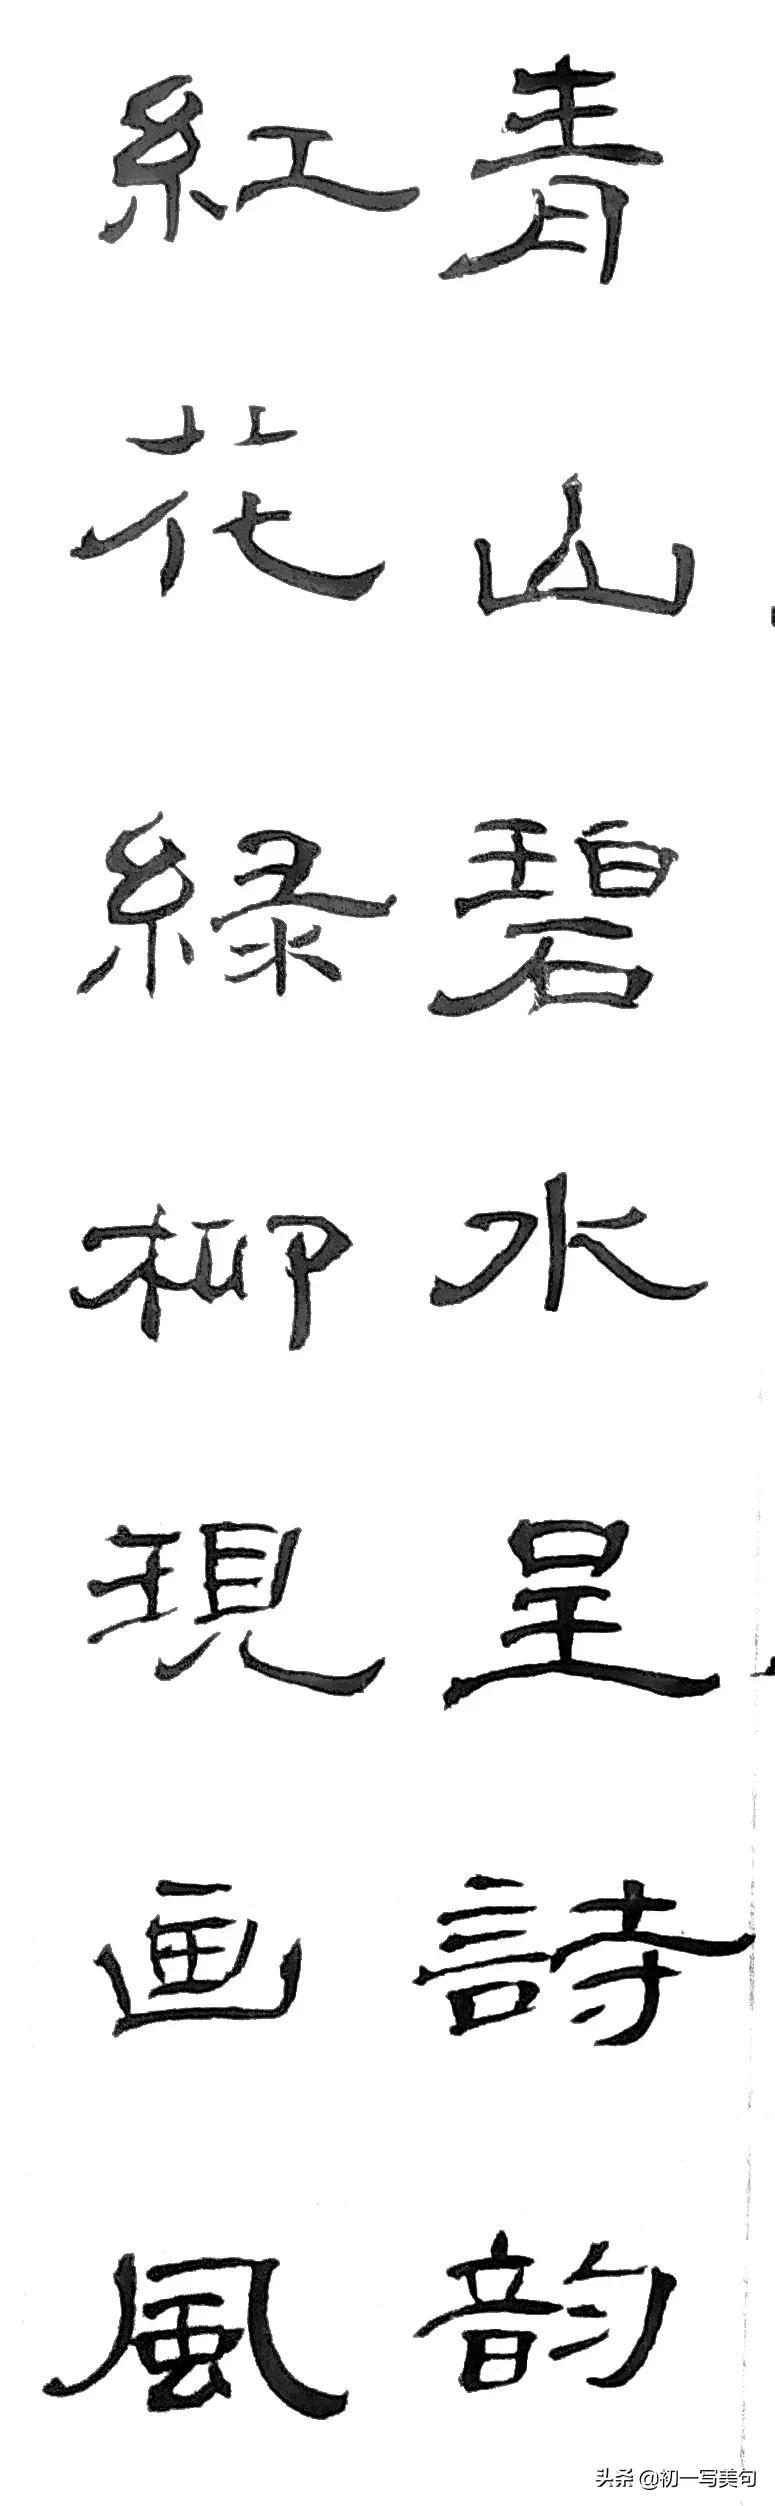 青山碧水呈詩韵
紅花緑柳現画風
头条 @初一写美句